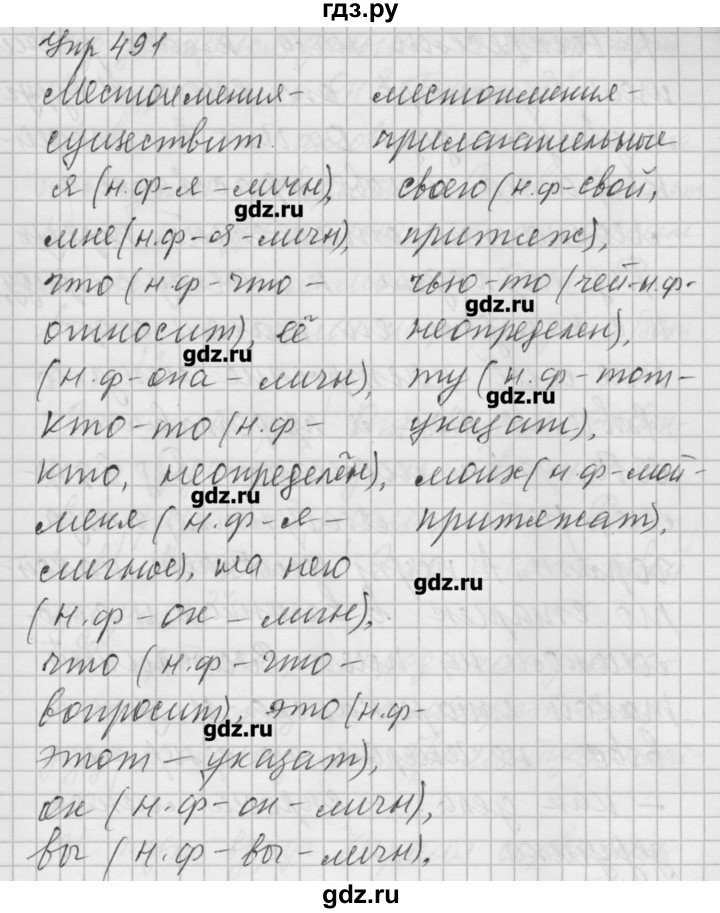 гдз.ру
Упр 491
Местоимения-
существит.
я (н.ф-я-личн),
gdz.ru
мне (н.ф-я-личн),
что (н.ф-что-
относит), её
gdz.ru
(н.ф-она-личн),
кто-то (н.ф-
кто, неопределён),
gdz.ru
меня (н.ф-я-
личное), на него
(н.ф-он-личн),
что (н.ф-что-
вопросит), это (н.ф-
gdz.ru
этот-указат),
он (н.ф-он-личн),
вы (н.ф-вы-личн).
местоимения-
прилагательные
своего (н.ф-свой,
притяж),
чью-то (чей-н.ф-
gdz.ru
неопределен),
ту (н.ф-тот-
gdz.ru
указат),
моих (н.ф-мой-
притяжат),
gdz.ru
gdz.ru